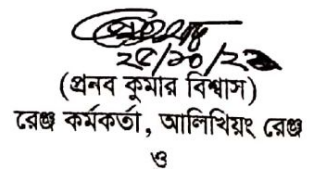 ২৫/১০/২২
(প্রনব কুমার বিশ্বাস)
রেঞ্জ কর্মকর্তা, আলিখিয়ং রেঞ্জ
ও